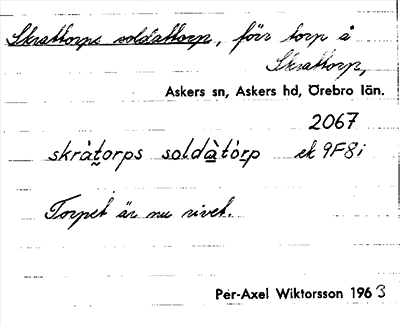 Skrattorps soldattorp, förr torp å
Skrattorp,
Askers sn, Askers hd, Örebro län.
2067
skràt̰orps soldà̱tór̰p ek 9F8i
Torpet är nu rivet.
Per-Axel Wiktorsson 1963